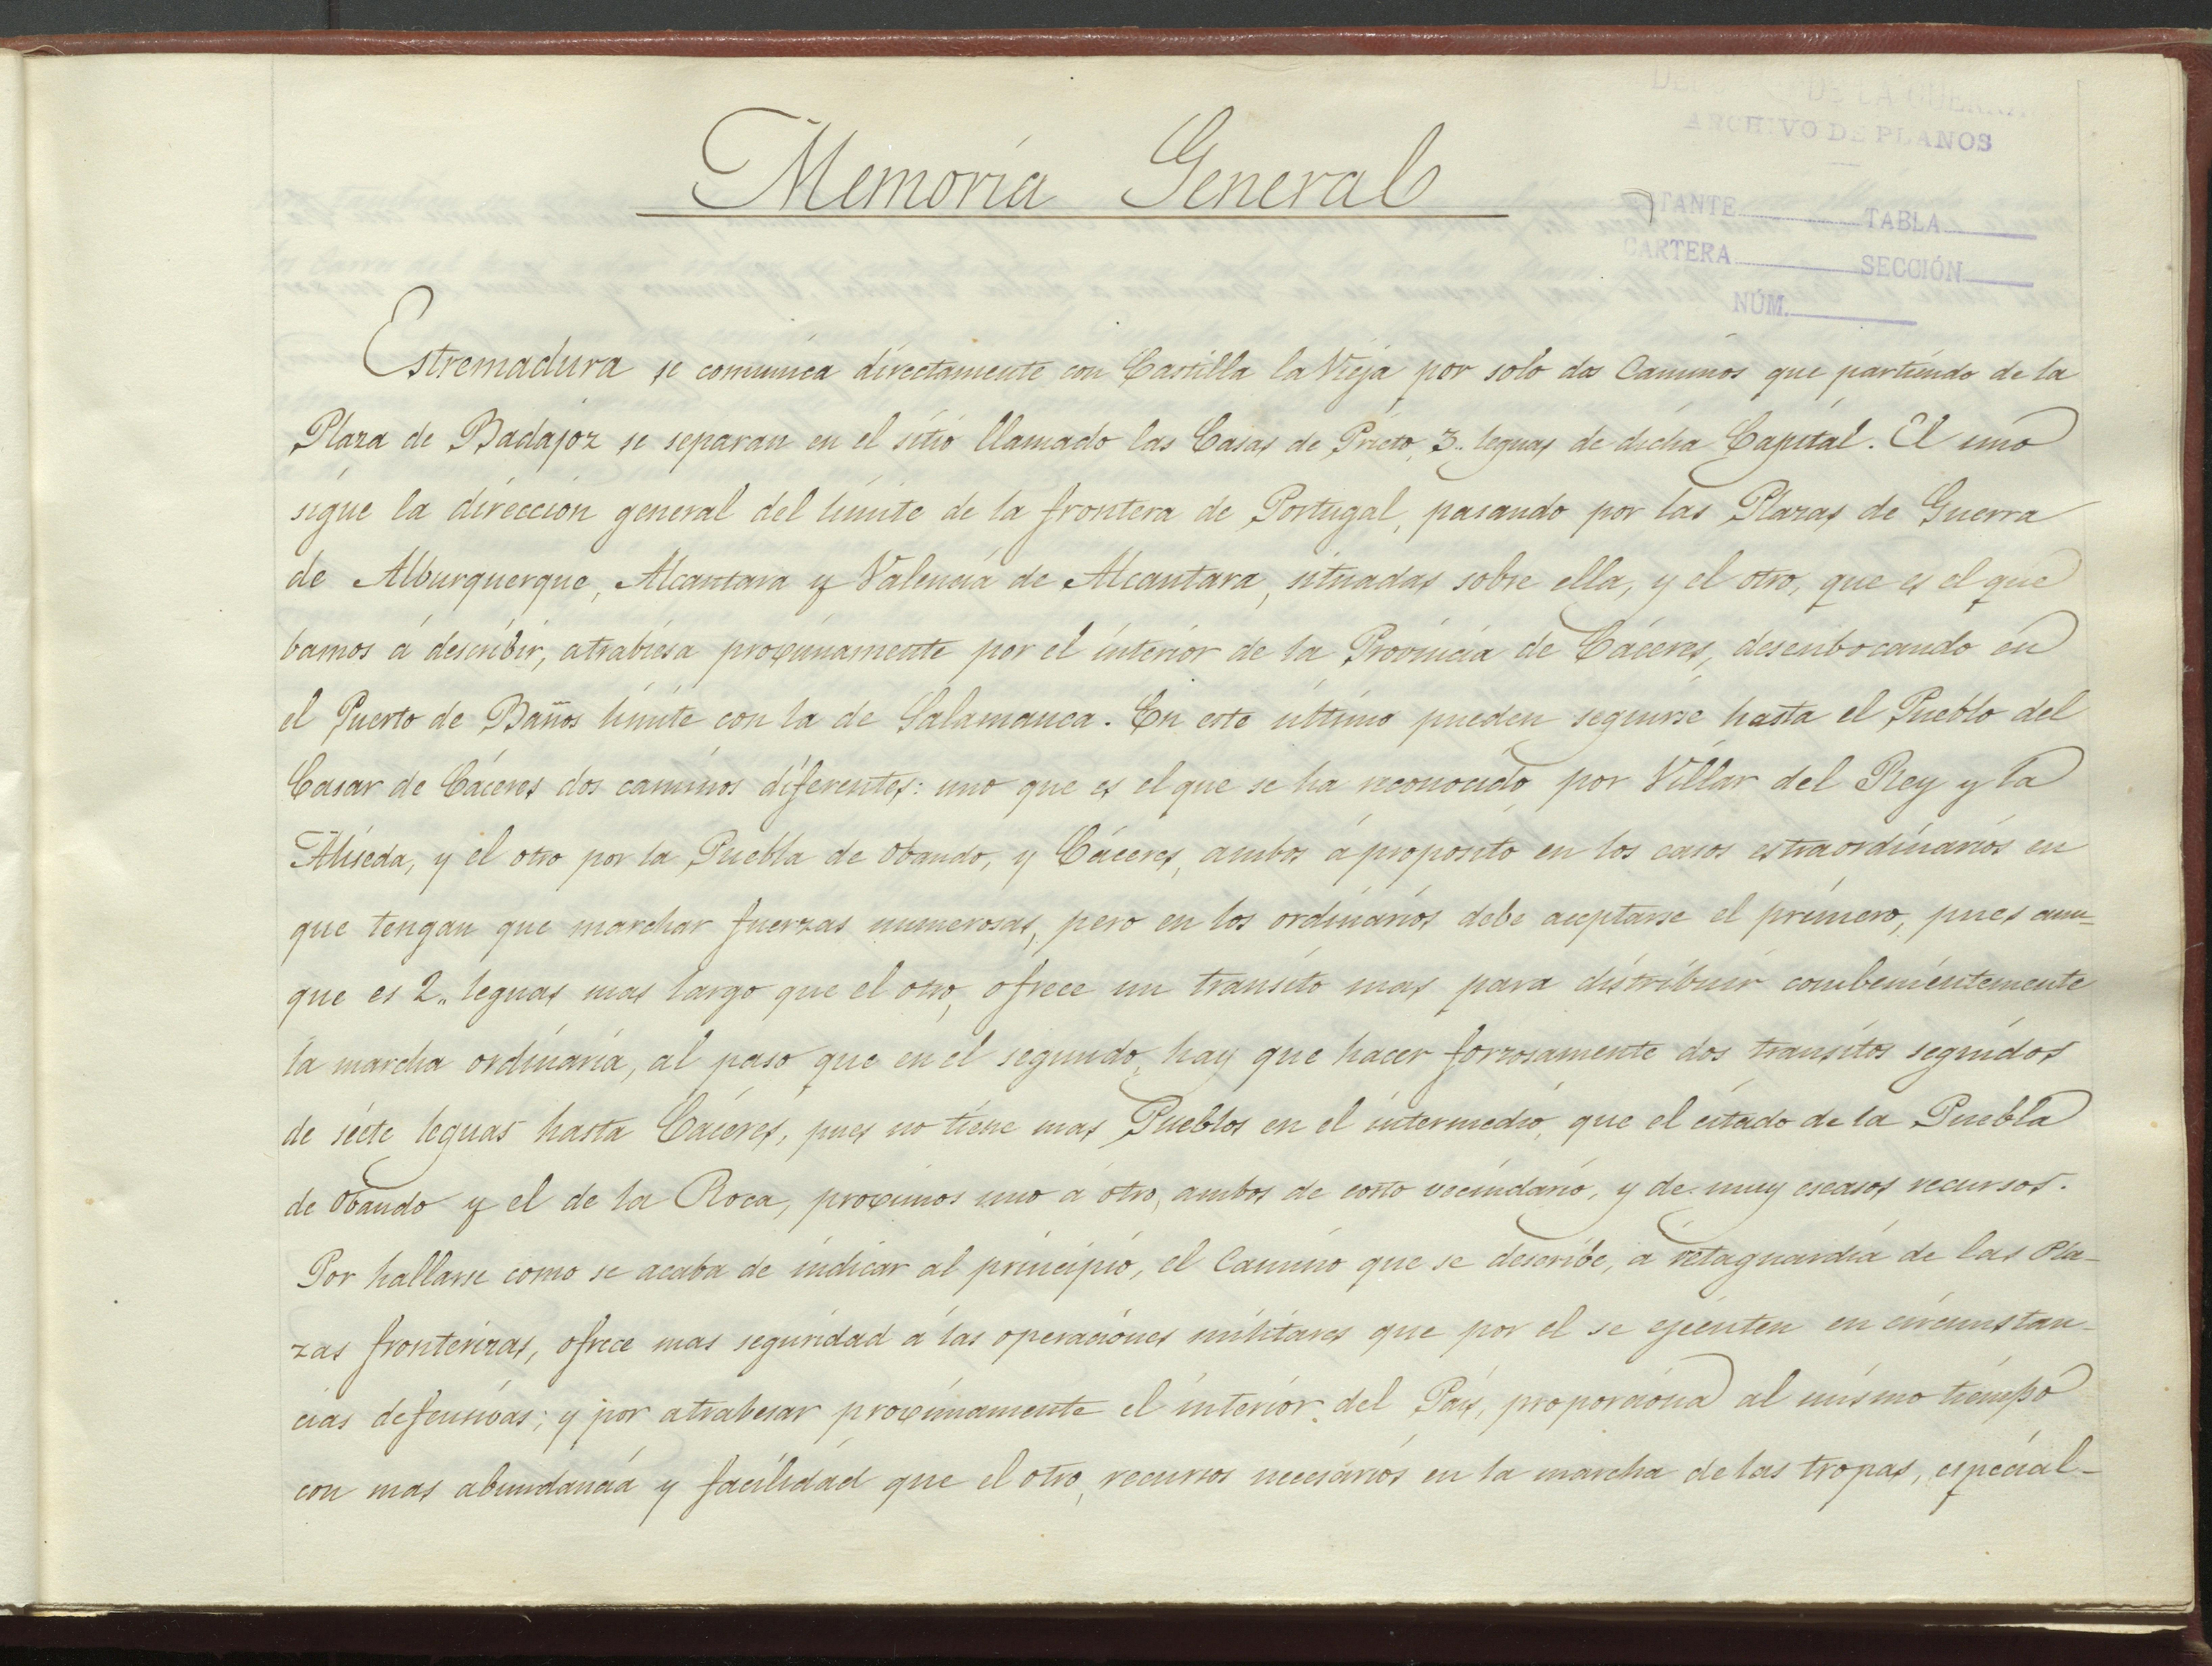 Memoria General
DE LA GUERRA
ARCHIVO DE PLANOS
ESTANTE TABLA
CARTERA SECCIÓN
NÚM.
Estremadura se comunica directamente con Castilla la Vieja por solo dos Caminos que partiendo de la
Plaza de Badajoz se separan en el sitio llamado las Casas de Prieto, 3.. leguas de dicha Capital. El uno
sigue la direccion general del limite de la frontera de Portugal, pasando por las Plazas de Guerra
de Alburquerque, Alcantara y Valencia de Alcantara, situadas sobre ella, y el otro, que es el que
bamos á describir, atrabiesa proximamente por el interior de la Provincia de Cáceres, desenbocando en
el Puerto de Baños limite con la de Salamanca. En este último pueden seguirse hasta el Pueblo del
Casar de Cáceres dos caminos diferentes: uno que es el que se ha reconocido por Villar del Rey y la
Aliseda, y el otro por la Puebla de Obando, y Cáceres, ambos á proposito en los casos estraordinarios en
que tengan que marchar fuerzas numerosas, pero en los ordinarios debe aceptarse el primero, pues aun=
que es 2.. leguas mas largo que el otro, ofrece un transito mas para distribuir combenientemente
la marcha ordinaria, al paso que en el segundo, hay que hacer forzosamente dos transitos seguidos
de siete leguas hasta Cáceres, pues no tiene mas Pueblos en el intermedio, que el citado de la Puebla
de Obando y el de la Roca, proximos uno á otro, ambos de corto vecindario, y de muy escasos recursos.
Por hallarse como se acaba de indicar al principio, el Camino que se describe, á retaguardia de las Pla-
zas fronterizas, ofrece mas seguridad á las operaciones militares que por el se ejecuten en circunstan-
cias defensivas; y por atrabesar proximamente el interior del Pais, proporciona al mismo tiempo
con mas abundancia y facilidad que el otro, recursos necesarios en la marcha de las tropas, especial-